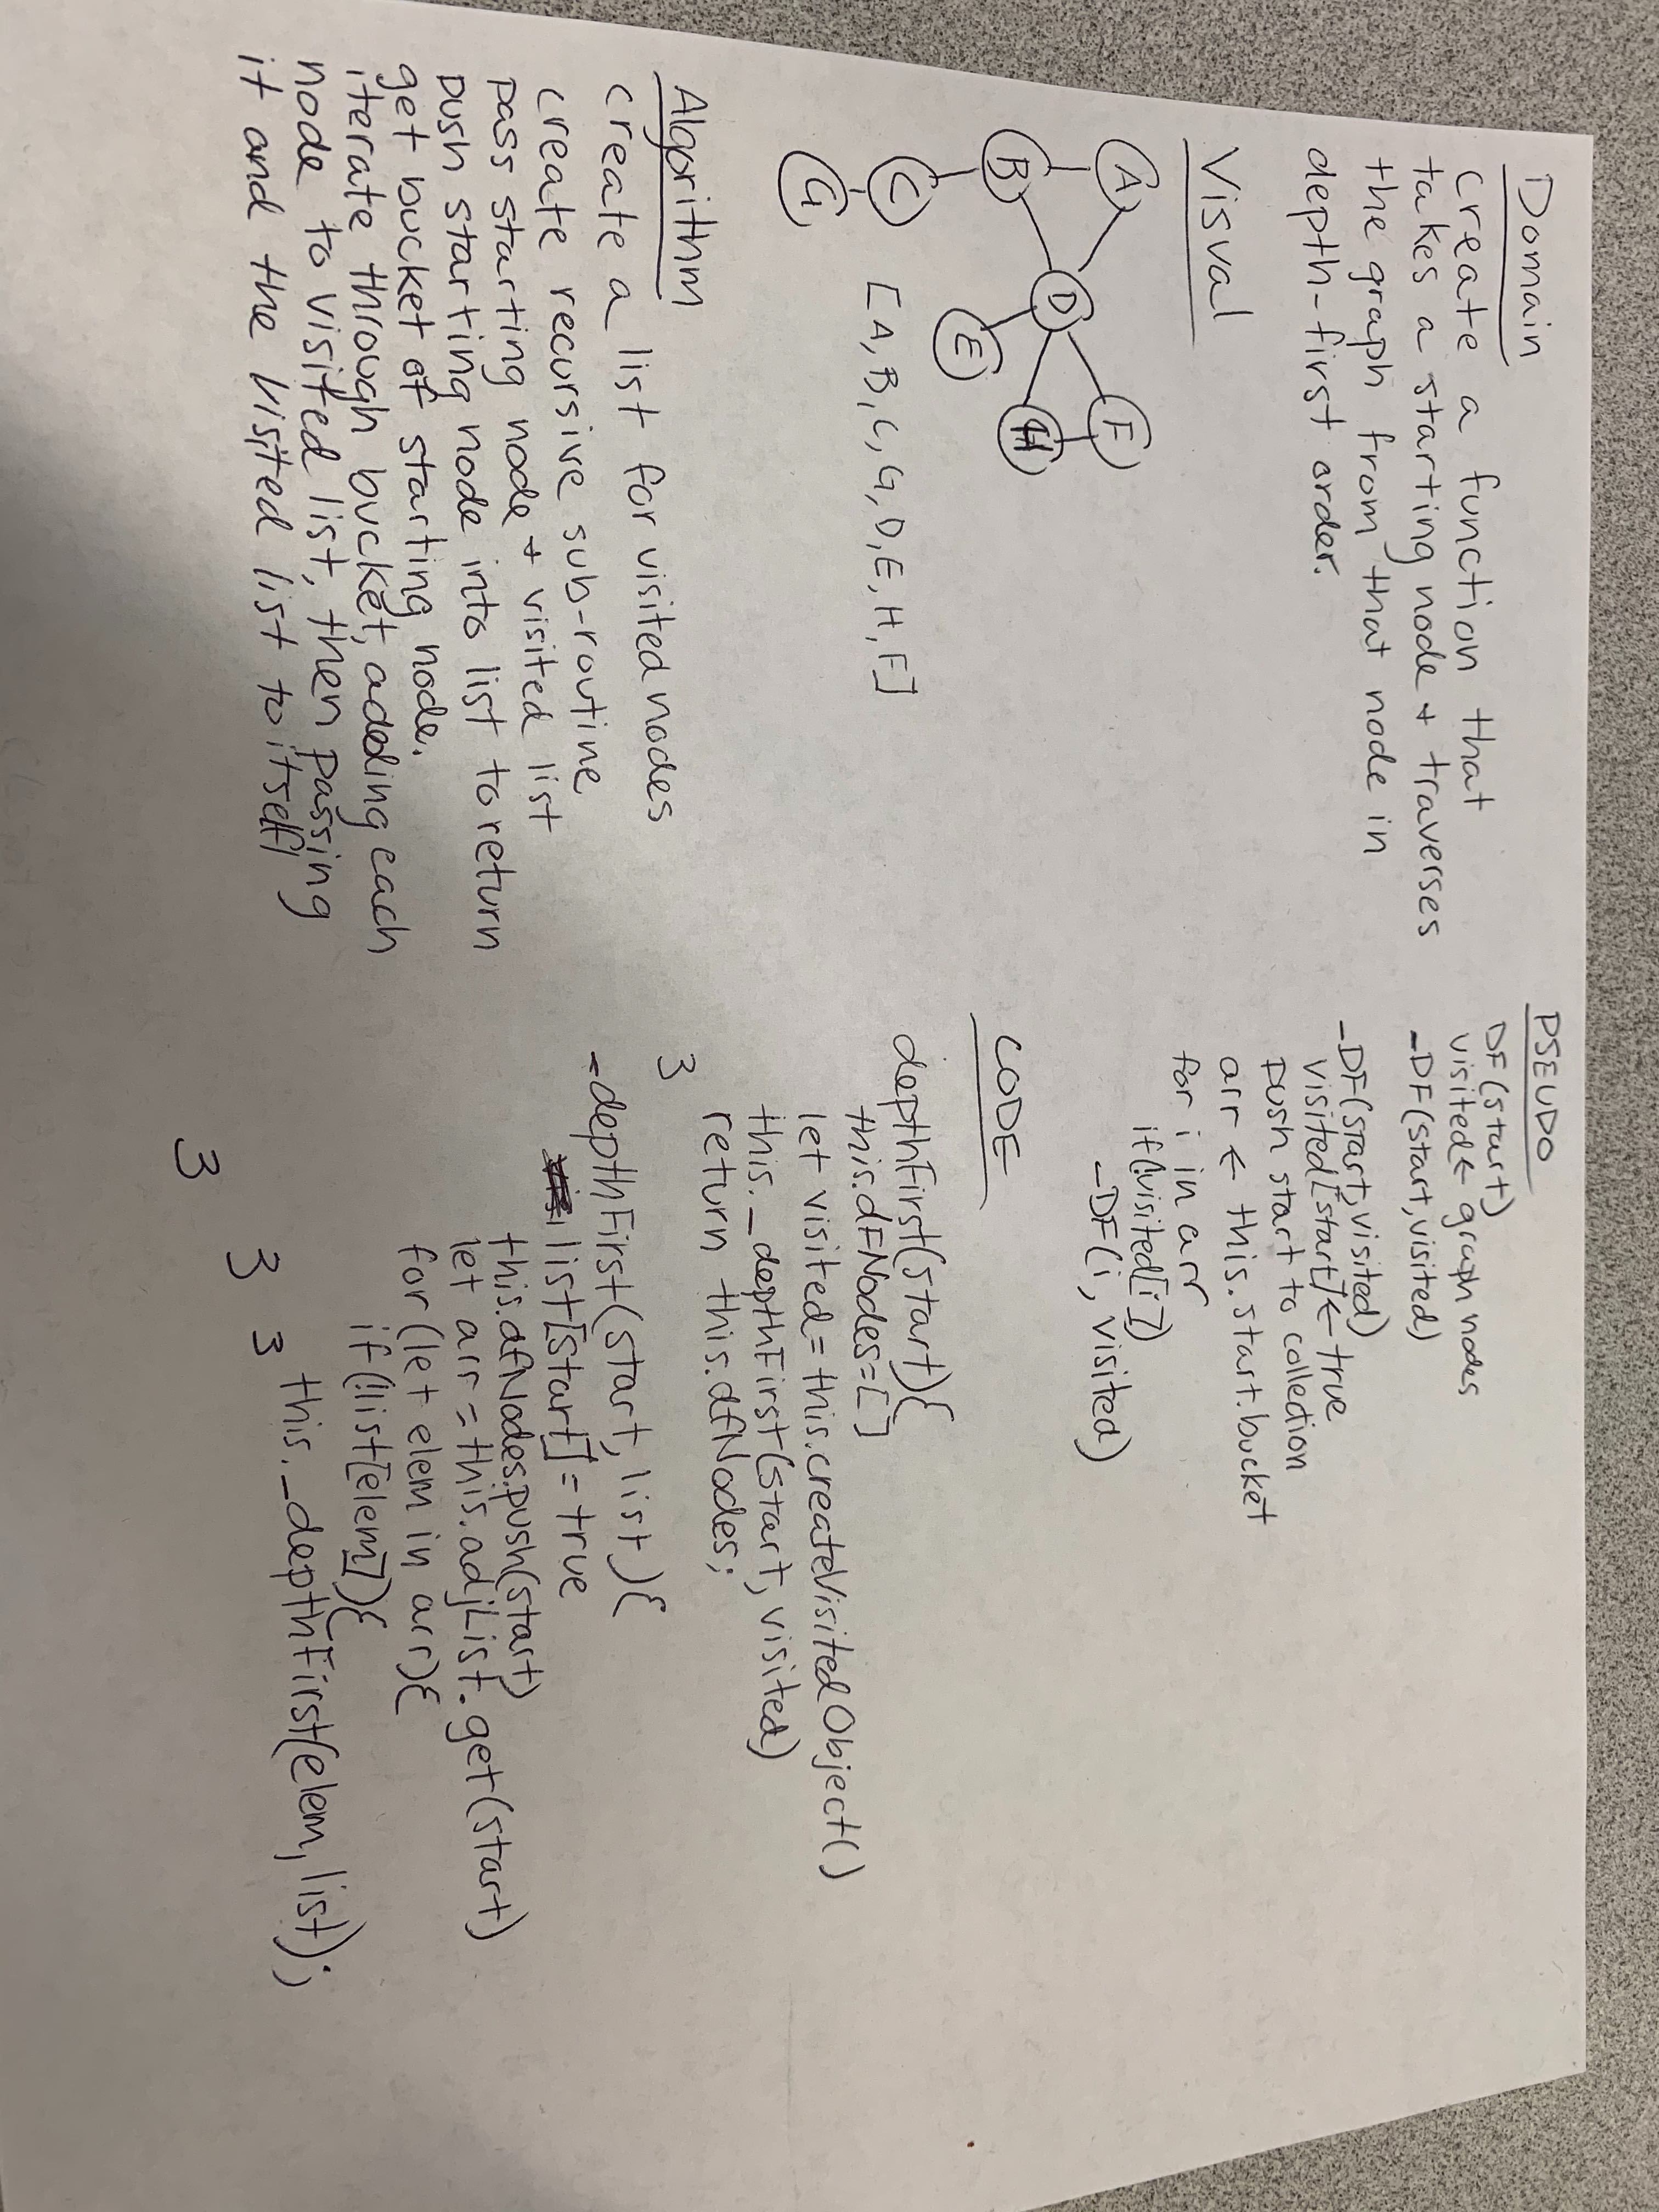 Domain
Create a function that
takes a starting node + traverses
the graph from that node in
depth-first order.
Visual
A
B
D
F
C
E
H
G
[A, B, C, G, D, E, H, F]
Algorithm
Create a list for visited nodes
Create recursive sub-routine
pass starting node + visited list
push starting node into list to return
get bucket of starting node.
iterate through bucket, adding each
node to visited list, then passing
it and the visited list to itself
PSEUDO
DF(start)
visited ← graph nodes
_DF(start, visited)
_DF(start, visited)
visited[start] ← true
push start to collection
arr ← this.start.bucket
for i in arr
if(!visited[i])
_DF(i, visited)
CODE
depthFirst(start){
this.dFNodes=[]
let visited = this.createVisitedObject()
this._depthFirst(start, visited)
return this.dfNodes;
}
_depthFirst(start, list){
list[start] = true
this.dfNodes.push(start)
let arr = this.adjList.get(start)
for (let elem in arr){
if(!list[elem]){
this._depthFirst(elem, list);
}
}
}